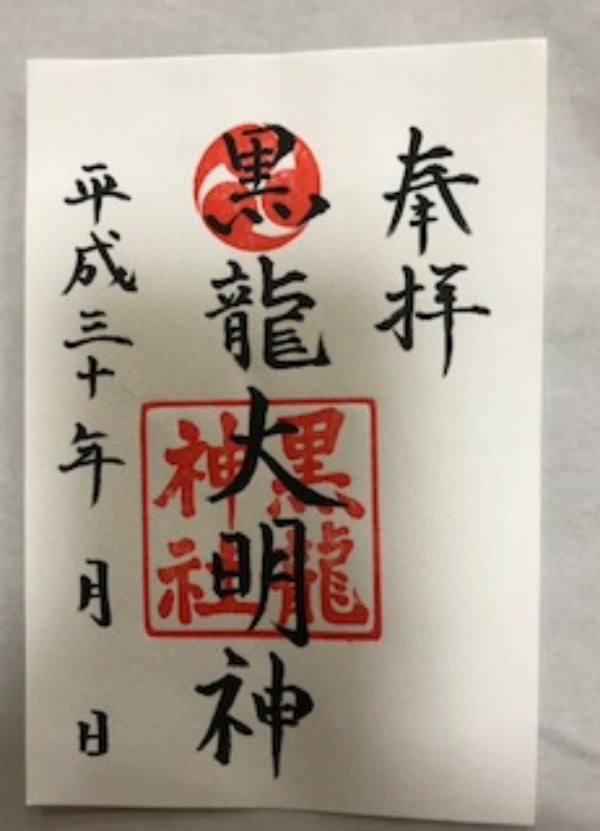 奉拝
黒龍大明神
黒龍神社
平成三十年 月 日